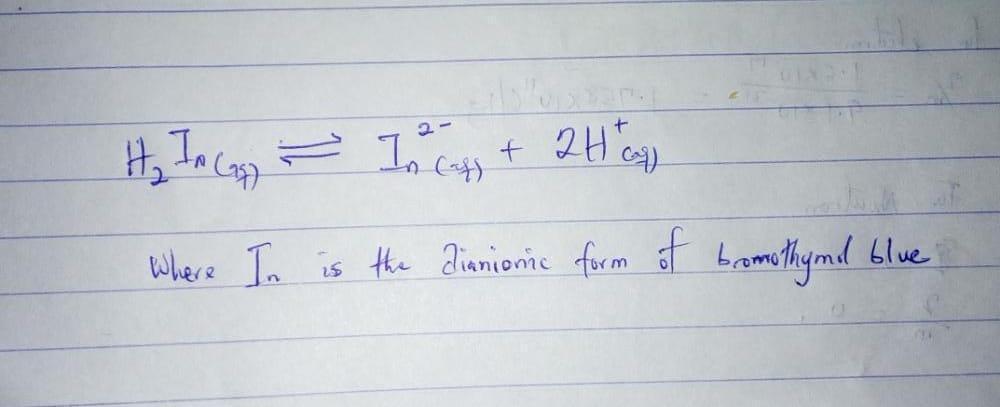 H₂In(aq) ⇌ In²⁻(aq) + 2H⁺(aq)
Where In is the dianionic form of bromothymol blue